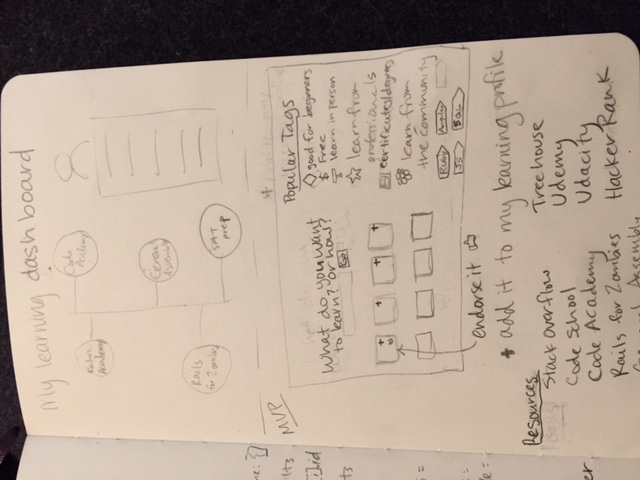 My learning dashboard
Code
Academy
Kahn
Academy
General
Assembly
Rails
for Zombies
SAT
prep
MVP
What do you want
to learn? or how?
GO
Popular Tags
good for beginners
$ Free
learn in person
learn from
professionals
certificates/degrees
learn from
the community
Ruby
Angular
JS
SQL
endorse it
+ add it to my learning profile
Resources
Stack Overflow
Code School
Code Academy
Rails for Zombies
General Assembly
Treehouse
Udemy
Udacity
Hacker Rank